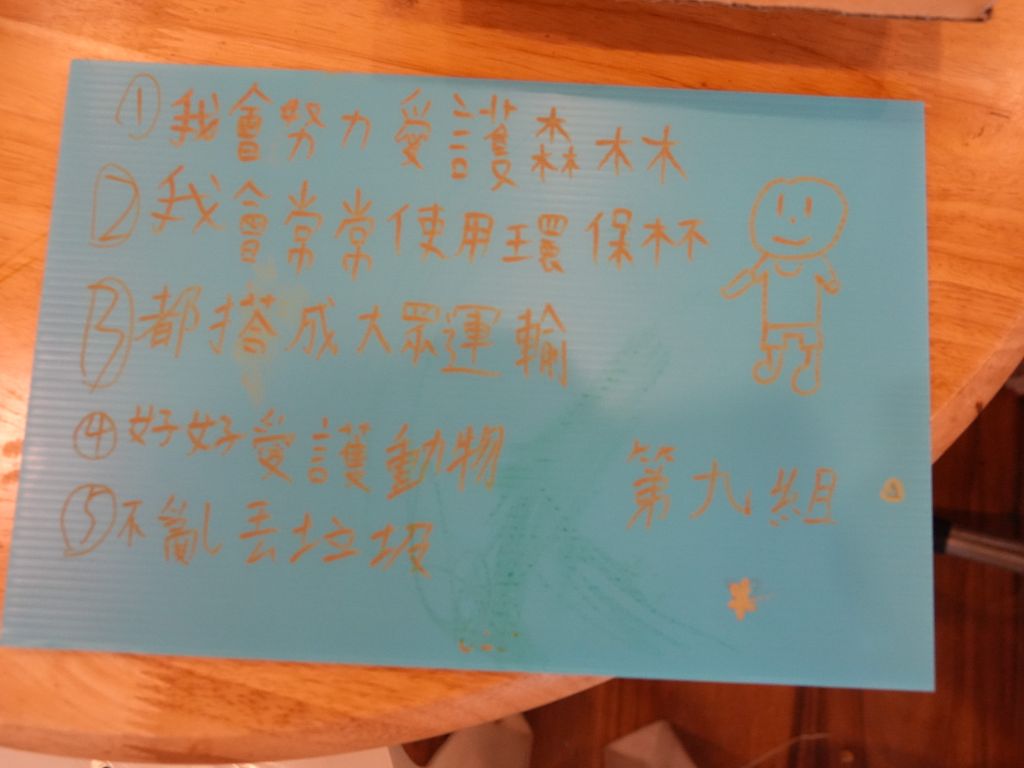 ①我會努力愛護森林
②我會常常使用環保杯
③都搭成大眾運輸
④好好愛護動物
⑤不亂丟垃圾
第九組